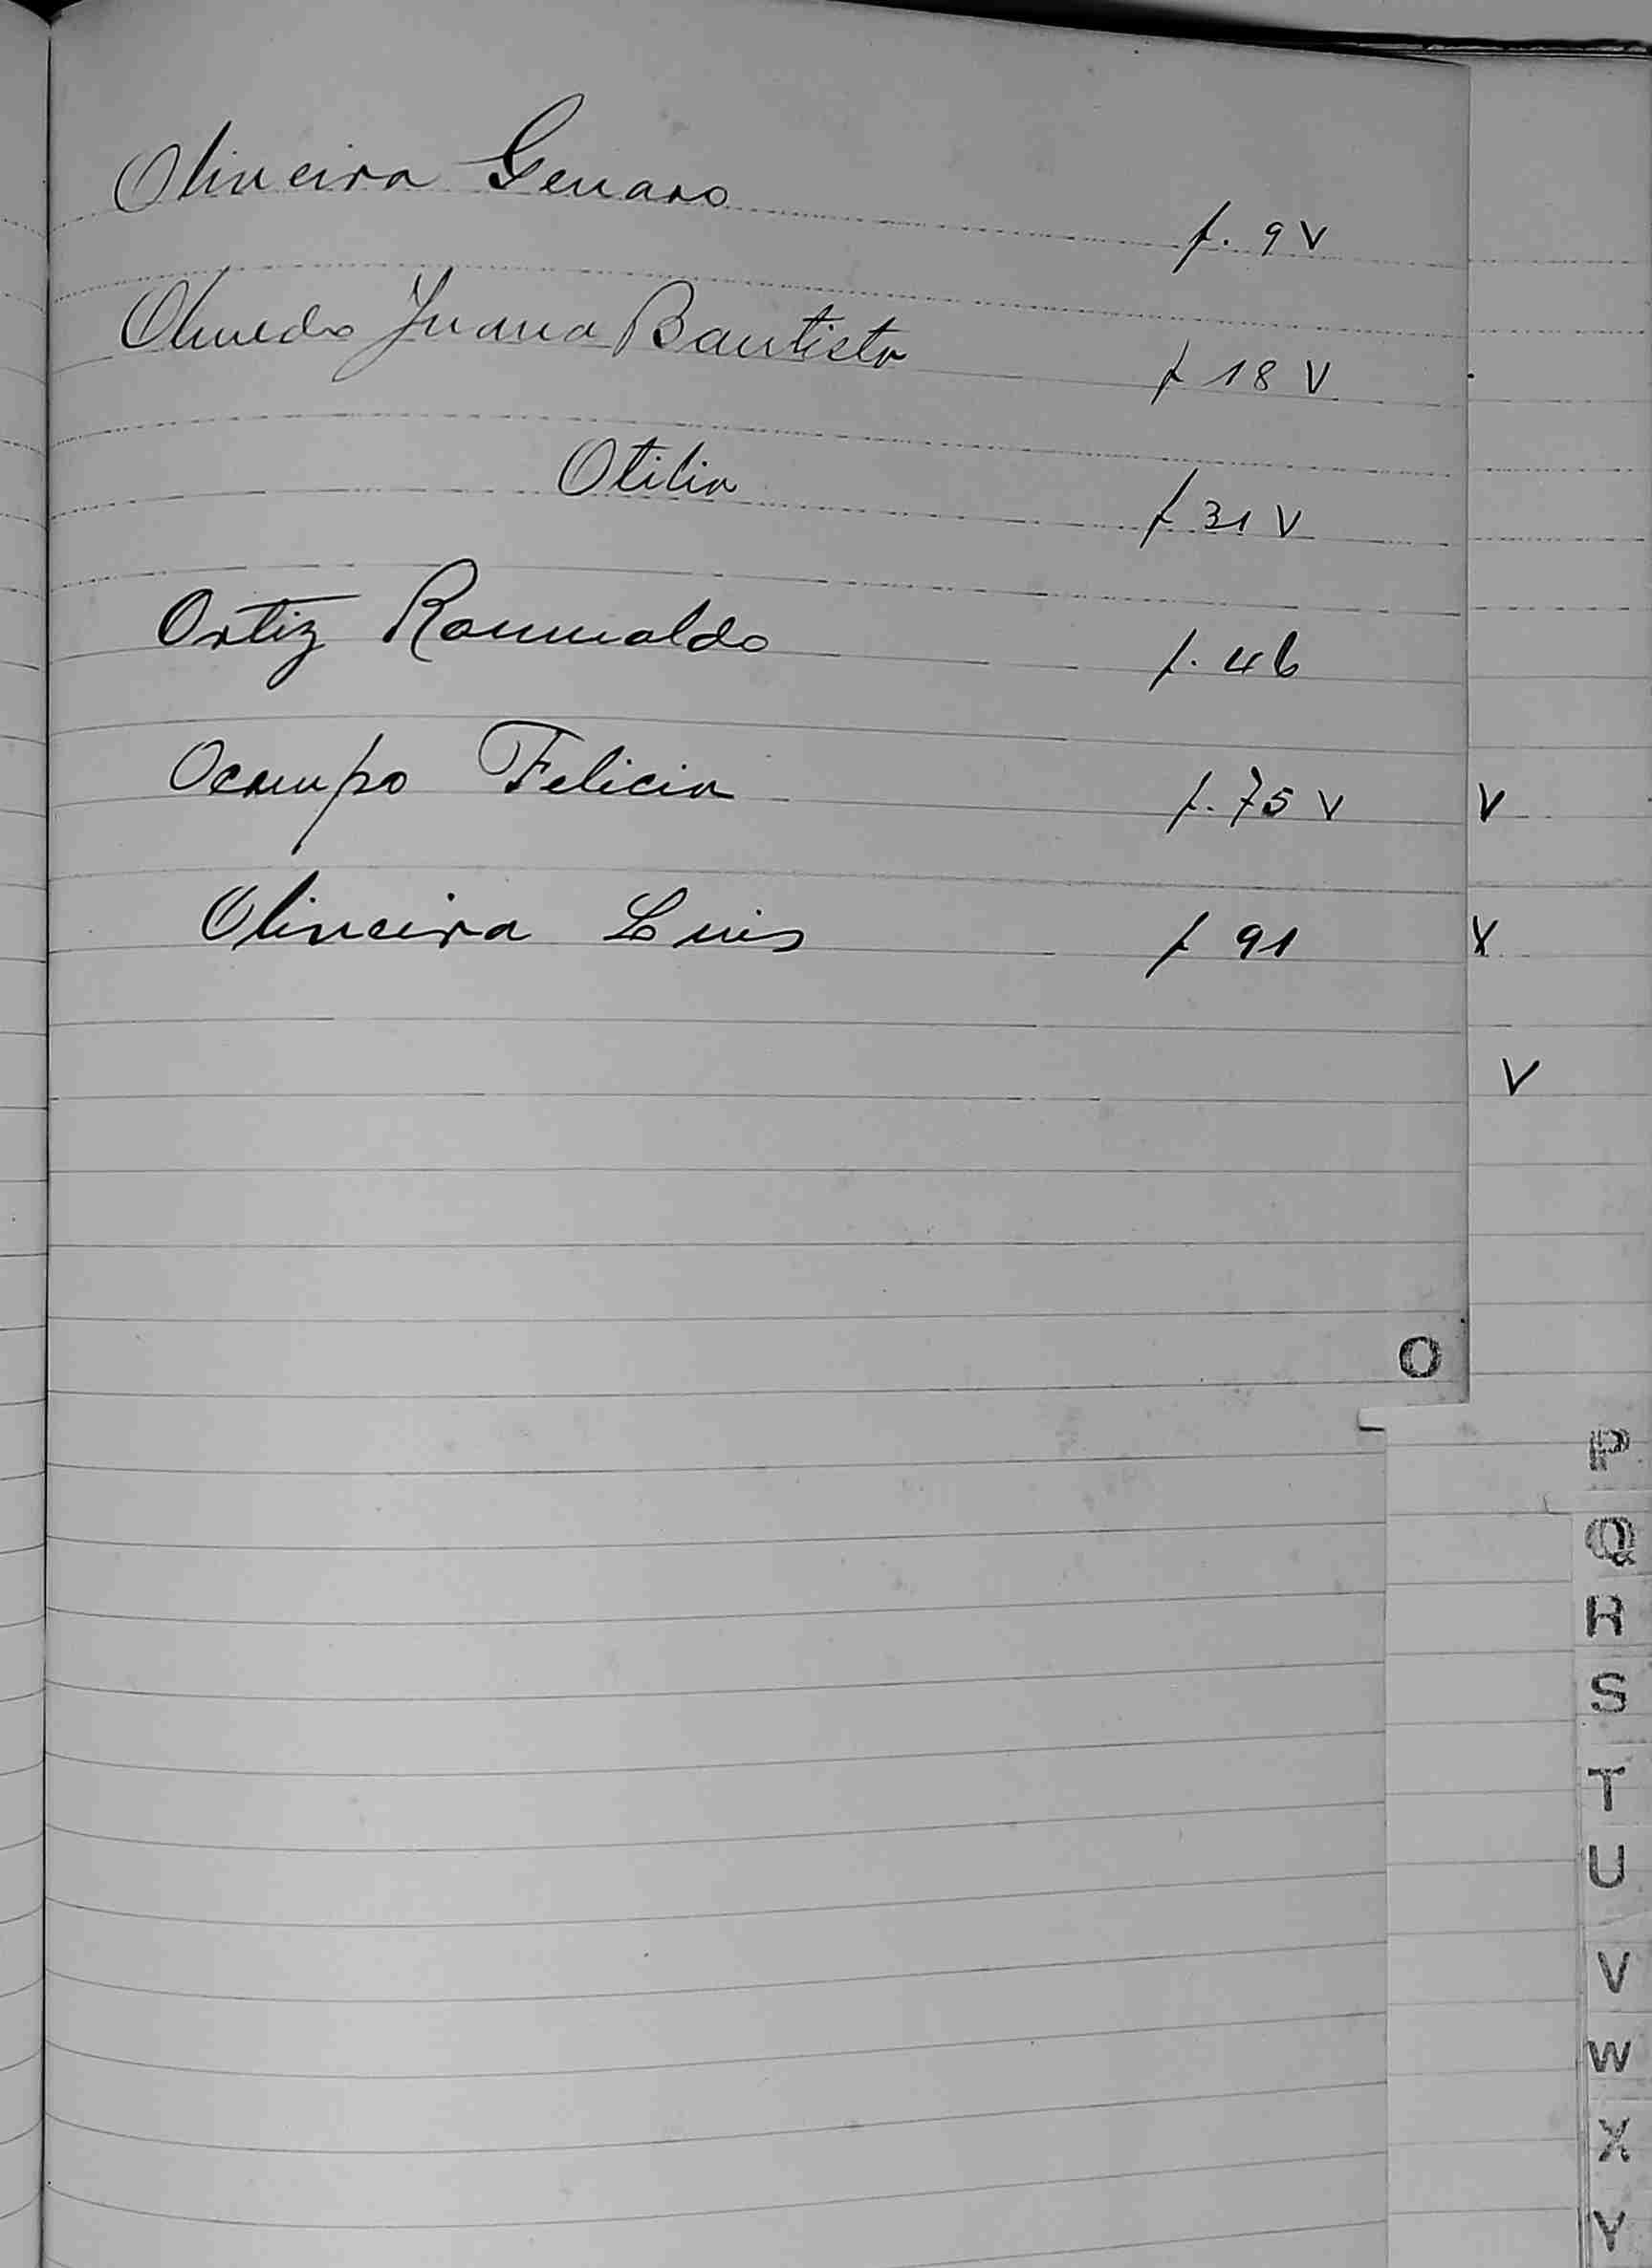 Oliveira Genaro f. 9 V
Olmedo Juana Bautista f 18 V
Otilia f 31 V
Ortiz Romualdo f. 46
Ocampo Felicia f. 75 V V
Oliveira Luis f 91 V
V
O
P
Q
R
S
T
U
V
W
X
Y